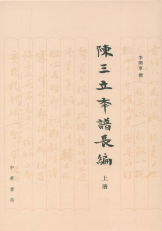 李開軍 撰
陳三立年譜長編
上册
中華書局